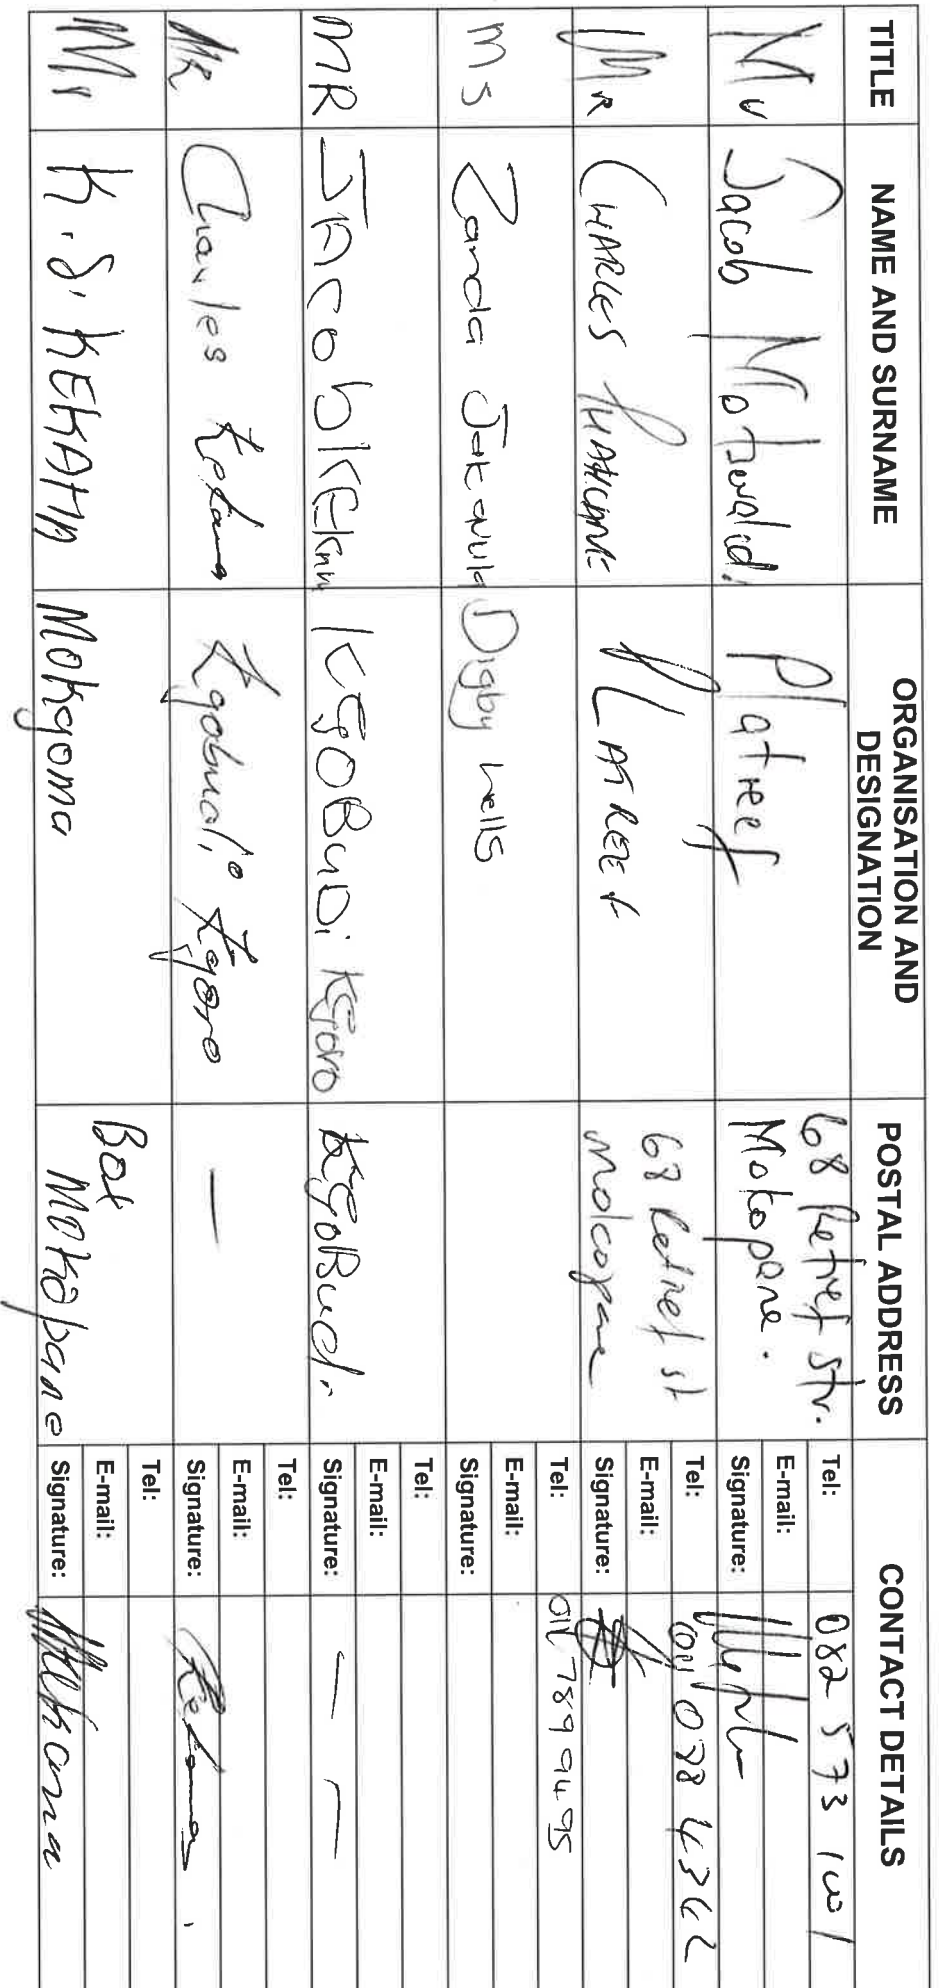 TITLE
NAME AND SURNAME
ORGANISATION AND DESIGNATION
POSTAL ADDRESS
CONTACT DETAILS
Mr
Jacob
Platreef
68 Retief Str.
Mokopane.
Tel: 082 573
E-mail:
Signature:
MR
CHARLES
PLATREEF
68 Retief st
Mokopane
Tel: 4362
E-mail:
Signature:
MS
Zanda
Digby Wells
Tel: 011 789 9495
E-mail:
Signature:
MR
JACob KEKANA
KGOBUDi KGoro
KGOBudi
Tel:
E-mail:
Signature: — —
MR
Charles Kekana
Kgobudi Kgoro
—
Tel:
E-mail:
Signature: Kekana
Mr
K.S. KEKANA
Mokgoma
Box
Mokopane
Tel:
E-mail:
Signature: